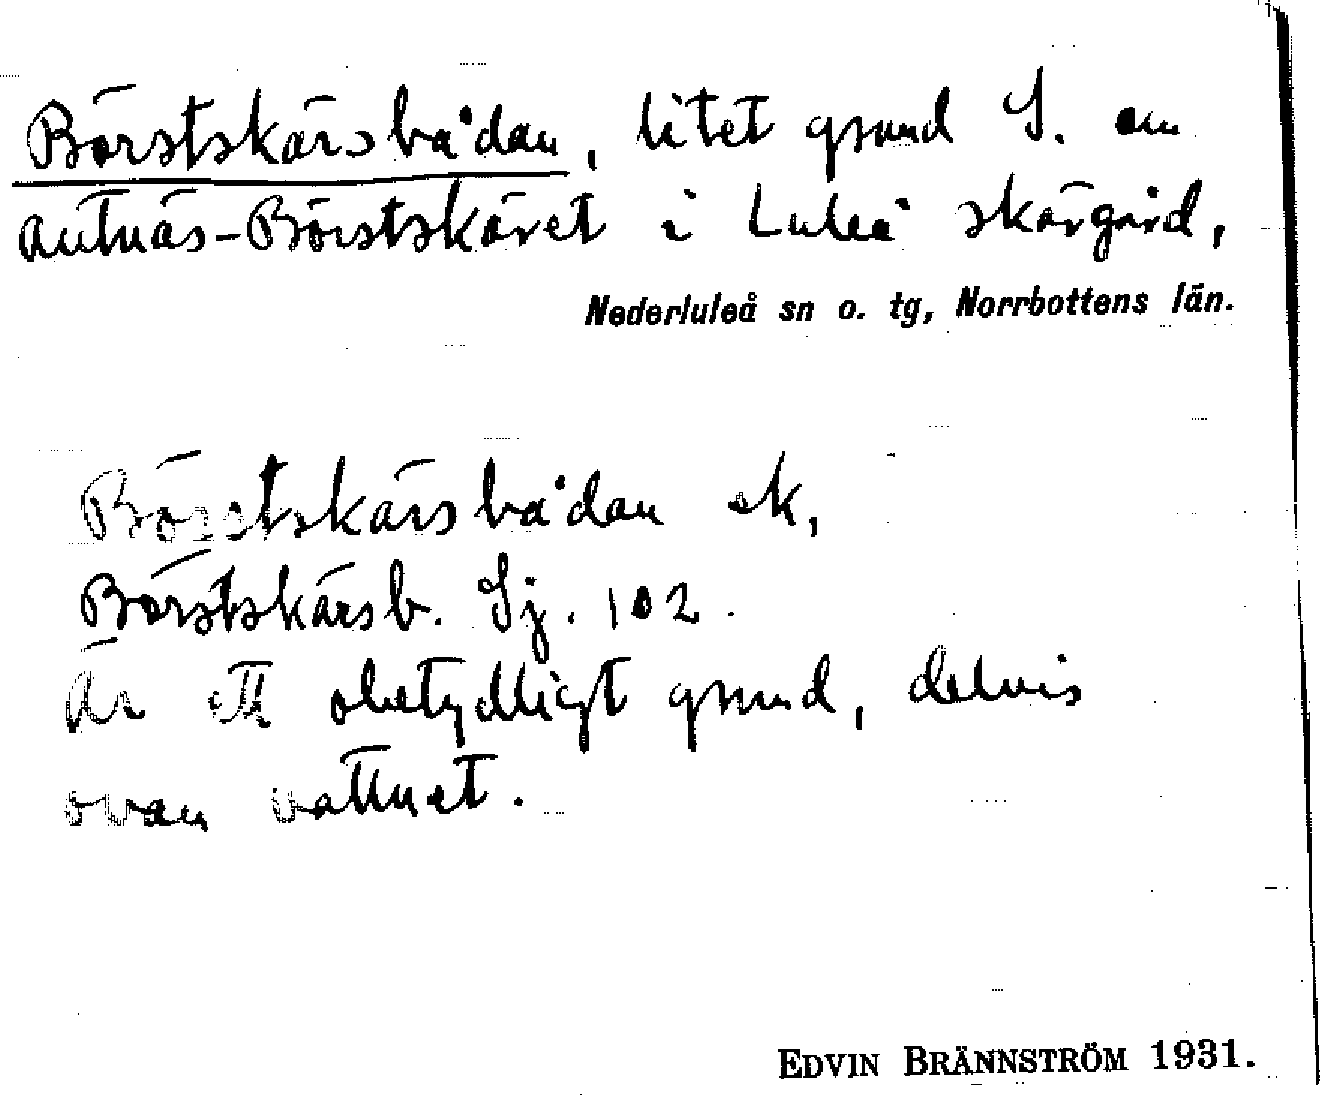 Börstskärsbådan, litet grund S. om
Antnäs-Börstskäret i Luleå skärgård,
Nederluleå sn o. tg, Norrbottens län.
Börstskärsbådan ek,
Börstskärsb. Sj. 102.
Är ett obetydligt grund, delvis
ovan vattnet.
EDVIN BRÄNNSTRÖM 1931.